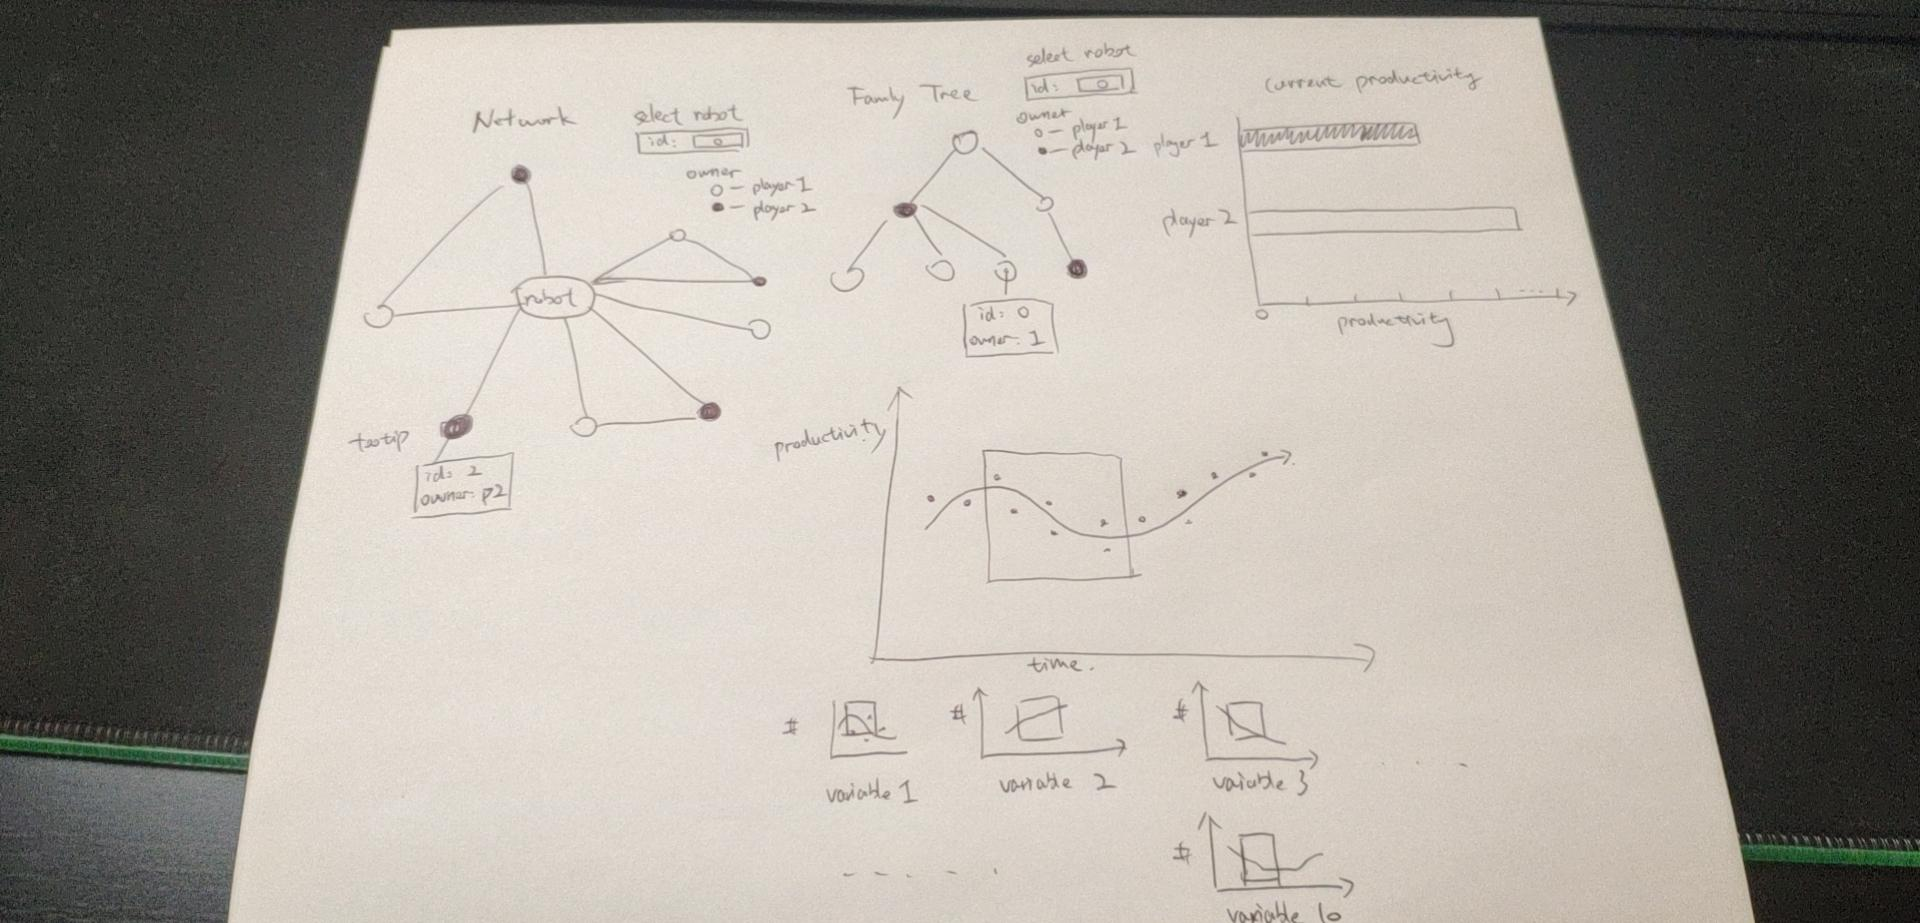 Network
select robot
id: 0
owner
o - player 1
● - player 2
robot
tootip
id: 2
owner: p2
Family Tree
select robot
id: 0
owner
o - player 1
● - player 2
id: 0
owner: 1
current productivity
player 1
player 2
0
productivity
productivity
time.
#
variable 1
#
variable 2
#
variable 3
. . . .
- - - - .
#
variable 10